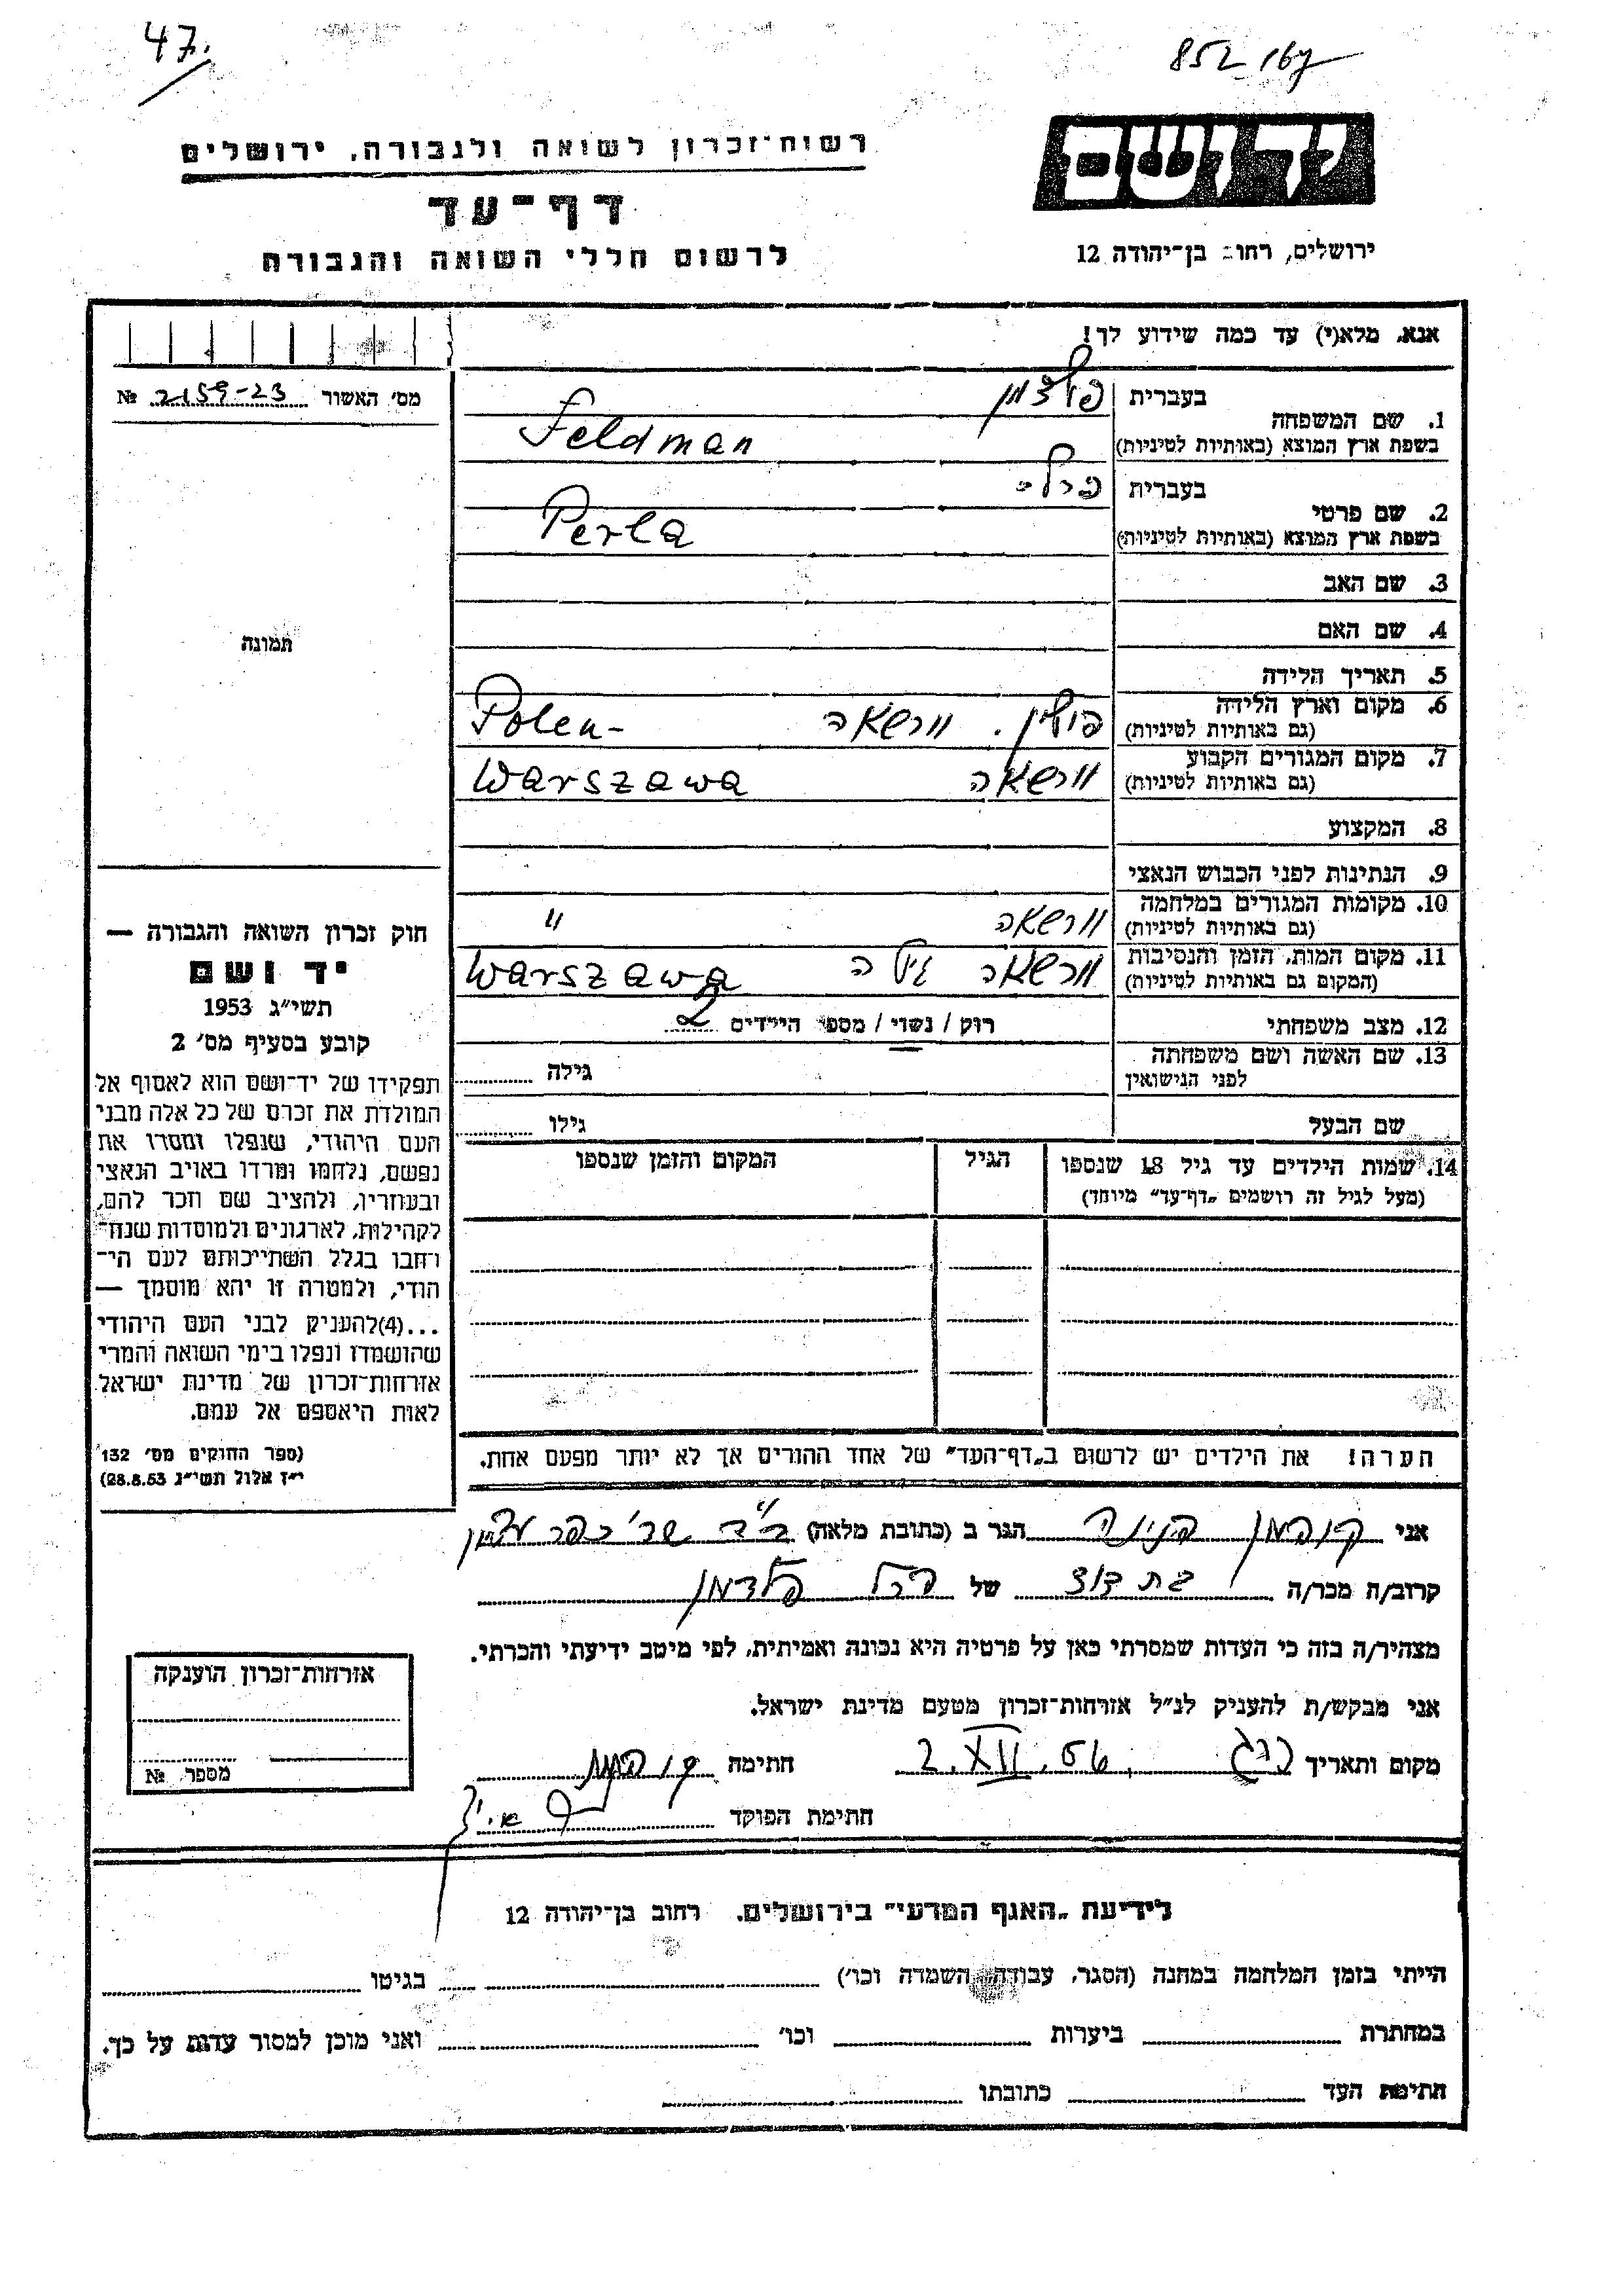 47.
852 167
רשות־זכרון לשואה ולגבורה, ירושלים
יד ושם
דף־עד
לרשום חללי השואה והגבורה
ירושלים, רחוב בן־יהודה 12
אנא, מלא(י) עד כמה שידוע לך!
מס׳ האשור № 2159-23
תמונה
1. שם המשפחה
בעברית פולדמן
בשפת ארץ המוצא (באותיות לטיניות) Feldman
2. שם פרטי
בעברית פרלה
בשפת ארץ המוצא (באותיות לטיניות) Perla
3. שם האב
4. שם האם
5. תאריך הלידה
6. מקום וארץ הלידה
(גם באותיות לטיניות) פולין. וורשאה Polen-
7. מקום המגורים הקבוע
(גם באותיות לטיניות) וורשאה Warszawa
8. המקצוע
9. הנתינות לפני הכבוש הנאצי
10. מקומות המגורים במלחמה
(גם באותיות לטיניות) וורשאה "
11. מקום המות, הזמן והנסיבות
(המקום גם באותיות לטיניות) וורשאה Warszawa
12. מצב משפחתי רוק / נשוי / מספר הילדים 2
13. שם האשה ושם משפחתה
לפני הנישואין גילה
שם הבעל גילו
14. שמות הילדים עד גיל 18 שנספו הגיל המקום והזמן שנספו
(מעל לגיל זה רושמים „דף־עד” מיוחד)
הערה! את הילדים יש לרשום ב„דף־העד” של אחד ההורים אך לא יותר מפעם אחת.
חוק זכרון השואה והגבורה —
יד ושם
תשי״ג 1953
קובע בסעיף מס׳ 2
תפקידו של יד־ושם הוא לאסוף אל
המולדת את זכרם של כל אלה מבני
העם היהודי, שנפלו ומסרו את
נפשם, נלחמו ומרדו באויב הנאצי
ובעוזריו, ולהציב שם וזכר להם,
לקהילות, לארגונים ולמוסדות שנח־
רחבו בגלל השתייכותם לעם הי־
הודי, ולמטרה זו יהא מוסמך —
...(4)להעניק לבני העם היהודי
שהושמדו ונפלו בימי השואה והמרי
אזרחות־זכרון של מדינת ישראל
לאות היאספם אל עמם.
(ספר החוקים מס׳ 132
י״ז אלול תשי״ג 28.8.53)
אני קופמן פנינה הגר ב (כתובת מלאה)
קרוב/ה מכר/ה בת דוד של פרל פלדמן
מצהיר/ה בזה כי העדות שמסרתי כאן על פרטיה היא נכונה ואמיתית, לפי מיטב ידיעתי והכרתי.
אני מבקש/ת להעניק לנ״ל אזרחות־זכרון מטעם מדינת ישראל.
מקום ותאריך 2.XII.56 חתימה
חתימת הפוקד
אזרחות־זכרון הוענקה
מספר №
לידיעת „האגף המדעי” בירושלים, רחוב בן־יהודה 12
הייתי בזמן המלחמה במחנה (הסגר, עבודה, השמדה וכו׳) בגיטו
במחתרת ביערות וכו׳ ואני מוכן למסור עדות על כך.
חתימת העד כתובתו